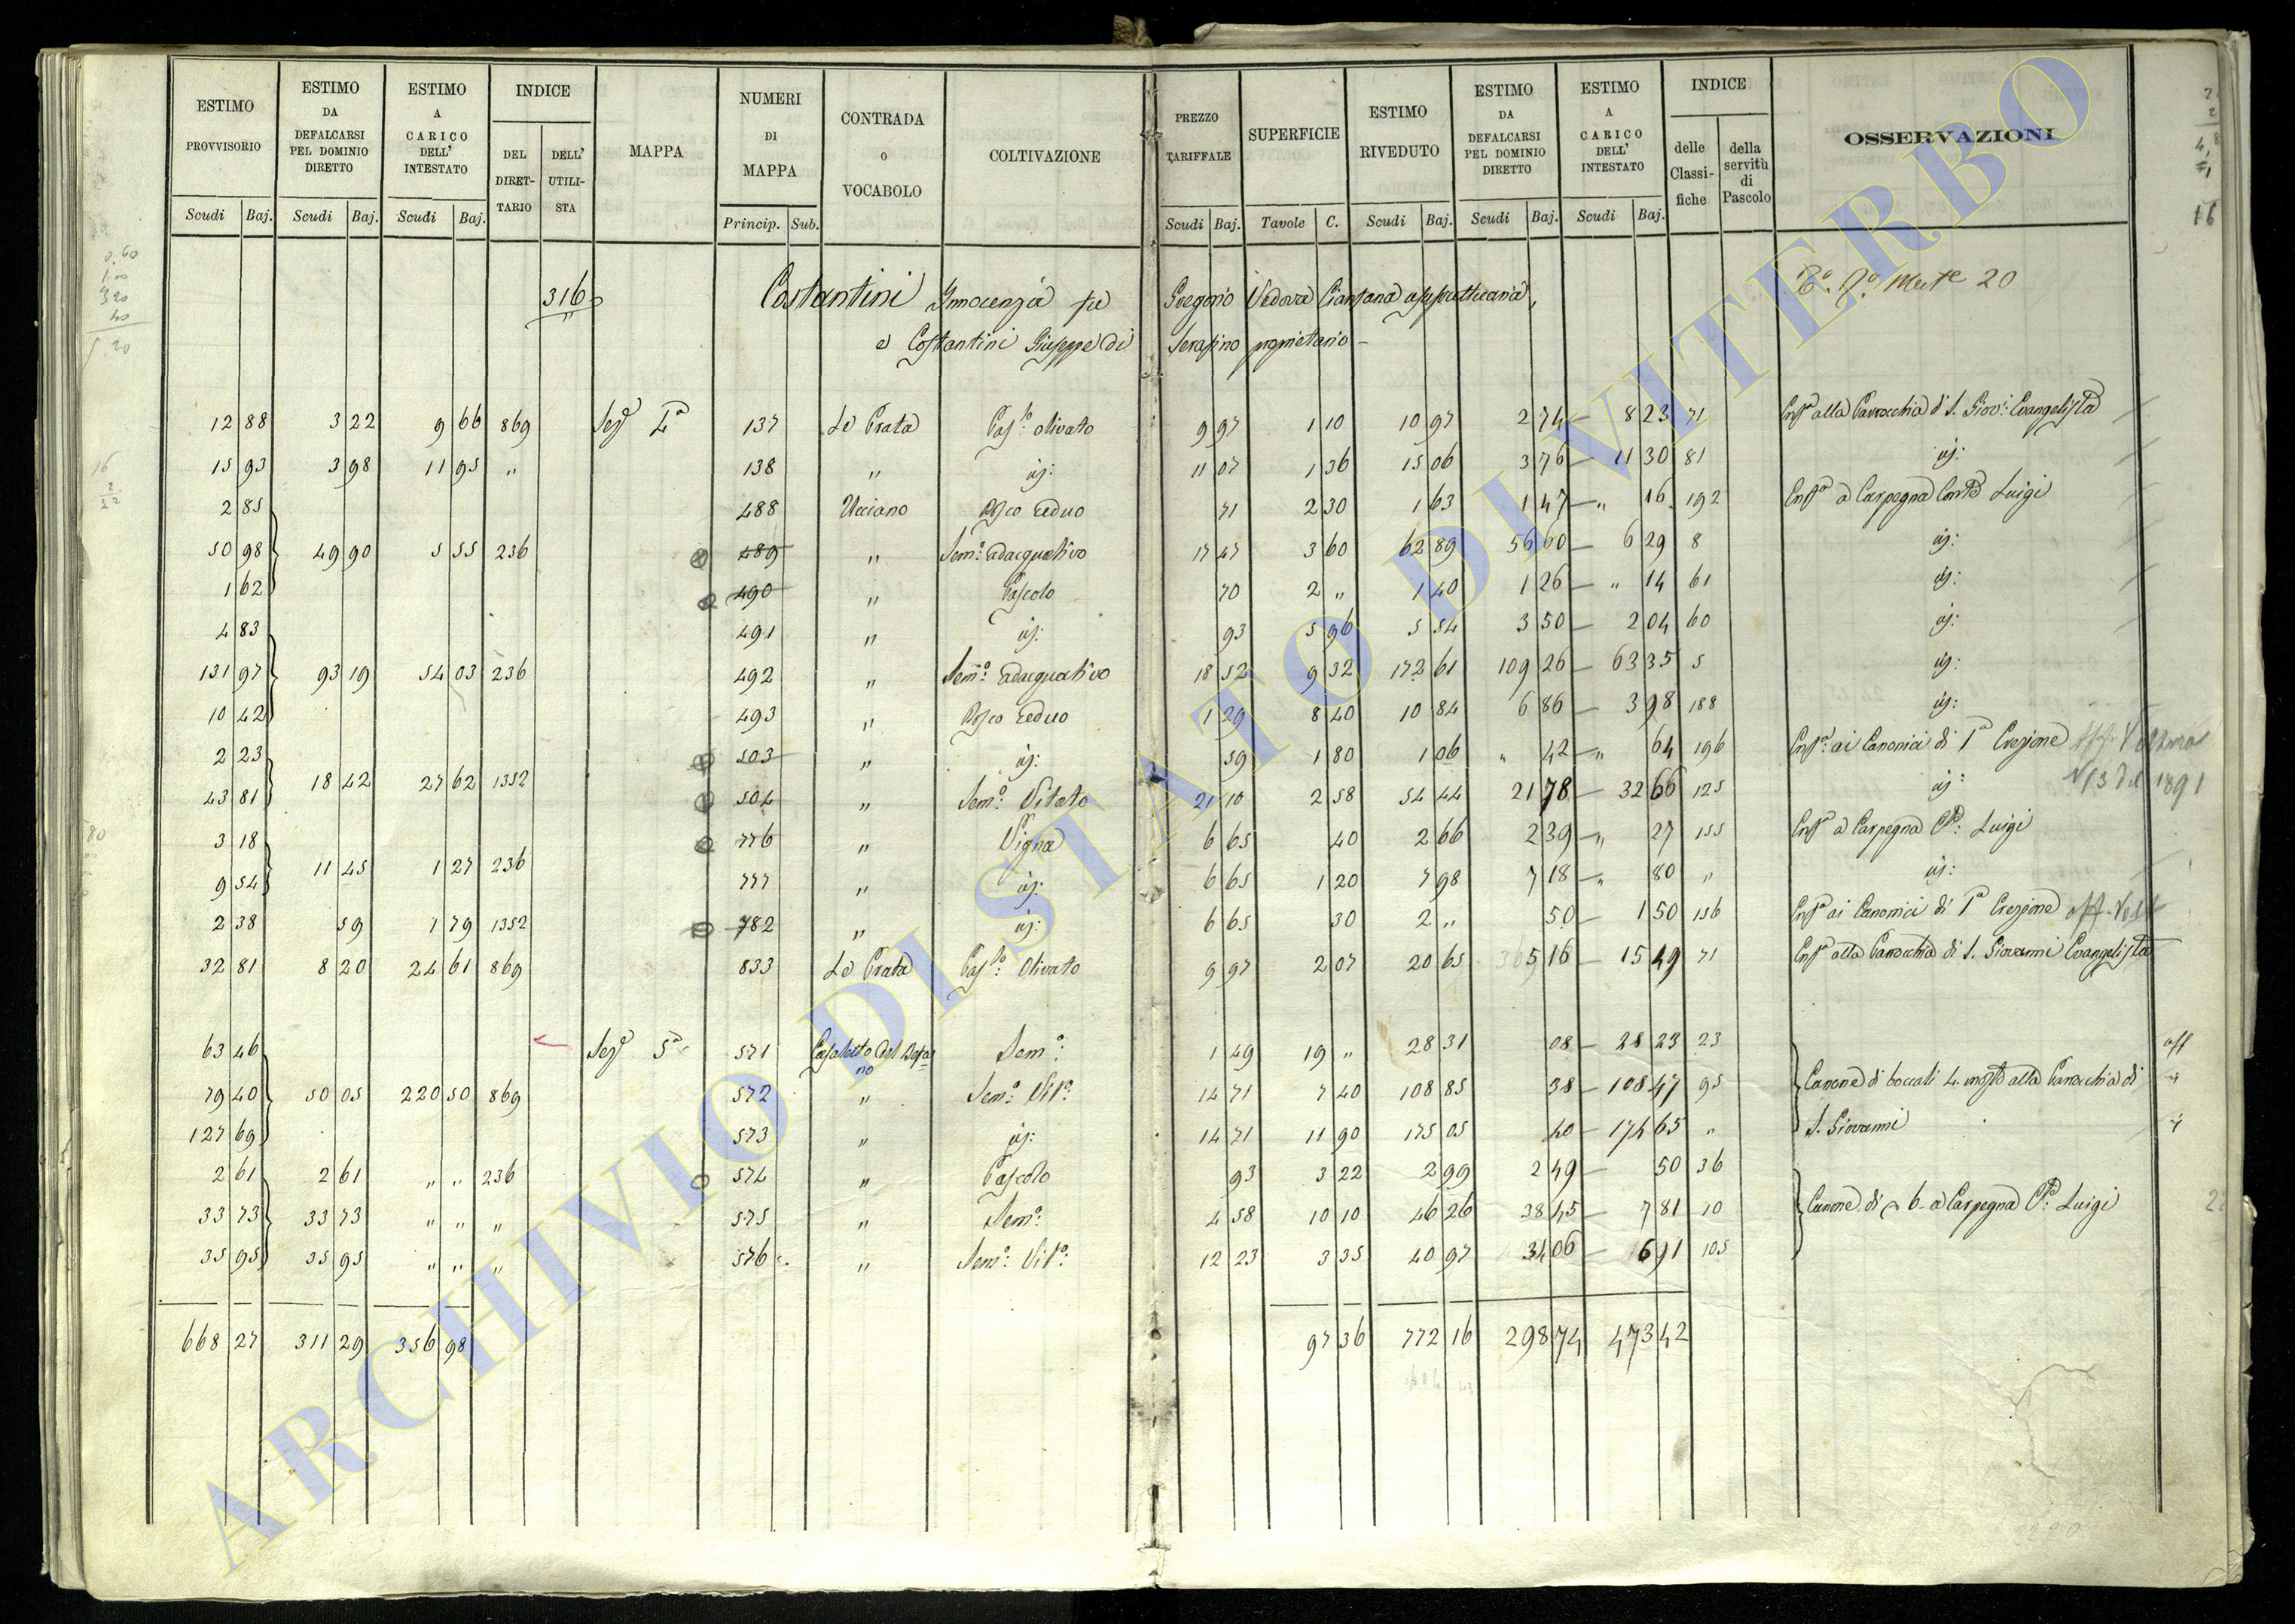 ESTIMO PROVVISORIO Scudi Baj. ESTIMO DA DEFALCARSI PEL DOMINIO DIRETTO Scudi Baj. ESTIMO A CARICO DELL' INTESTATO Scudi Baj. INDICE DEL DIRET-TARIO DELL' UTILI-STA MAPPA NUMERI DI MAPPA Princip. Sub. CONTRADA O VOCABOLO COLTIVAZIONE PREZZO TARIFFALE Scudi Baj. SUPERFICIE Tavole C. ESTIMO RIVEDUTO Scudi Baj. ESTIMO DA DEFALCARSI PEL DOMINIO DIRETTO Scudi Baj. ESTIMO A CARICO DELL' INTESTATO Scudi Baj. INDICE delle Classi-fiche della servitù di Pascolo OSSERVAZIONI
316 Costantini Innocenza fu Gregorio Vedova usufruttuaria, 20
e Costantini Giuseppe di Serafino proprietario
12 88 3 22 9 66 869 Sez.e 4a 137 Le Prata Pas.lo olivato 9 97 1 10 10 97 2 74 — 8 23 71 Enf.a alla Parrocchia di S. Giov: Evangelista
15 93 3 98 11 95 " 138 " id: 11 07 1 36 15 06 3 76 — 11 30 81 id:
2 85 488 Ucciano Bosco Ceduo 71 2 30 1 63 1 47 — " 16 192 Enf.a a Carpegna Conte Luigi
50 98 49 90 5 55 236 489 " Sem.o adacquativo 17 47 3 60 62 89 56 60 — 6 29 8 id:
1 62 490 " Pascolo 70 2 " 1 40 1 26 — " 14 61 id:
4 83 491 " id: 93 5 96 5 54 3 50 — 2 04 60 id:
131 97 93 19 54 03 236 492 " Sem.o adacquativo 18 52 9 32 172 61 109 26 — 63 35 5 id:
10 42 493 " Bosco Ceduo 1 29 8 40 10 84 6 86 — 3 98 188 id:
2 23 503 " id: 59 1 80 1 06 " 42 — " 64 196 Enf.a ai Canonici di 1a Erezione
43 81 18 42 27 62 1352 504 " Sem.o Vitato 21 10 2 58 54 44 21 78 — 32 66 125 id: del 1891
3 18 776 " Vigna 6 65 40 2 66 2 39 — " 27 155 Enf.a a Carpegna Luigi
9 54 11 45 1 27 236 777 " id: 6 65 1 20 7 98 7 18 — " 80 " id:
2 38 59 1 79 1352 782 " id: 6 65 30 2 " 50 — 1 50 156 Enf.a ai Canonici di 1a Erezione
32 81 8 20 24 61 869 833 Le Prata Pas.lo Olivato 9 97 2 07 20 65 5 16 — 15 49 71 Enf.a alla Parrocchia di S. Giovanni Evangelista
63 46 Sez.e 5a 571 Casaletto del Sem.o 1 49 19 " 28 31 08 — 28 23 23 aff
79 40 50 05 220 50 869 572 " Sem.o Vit.o 14 71 7 40 108 85 38 — 108 47 95 Canone di boccali 4 mosto alla Parrocchia di
127 69 573 " id: 14 71 11 90 175 05 40 — 174 65 " S. Giovanni
2 61 2 61 " " 236 574 " Pascolo 93 3 22 2 99 2 49 — 50 36
33 73 33 73 " " " 575 " Sem.o 4 58 10 10 46 26 38 45 — 7 81 10 Canone di 6 a Carpegna Luigi
35 95 35 95 " " " 576 " Sem.o Vit.o 12 23 3 35 40 97 34 06 — 6 91 105
668 27 311 29 356 98 97 36 772 16 298 74 473 42
ARCHIVIO DI STATO DI VITERBO